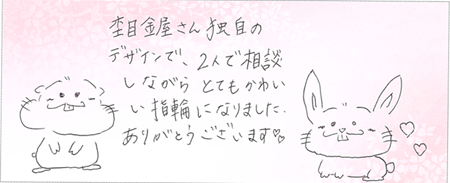 杢目金屋さん独自の
デザインで、2人で相談
しながら とてもかわい
い指輪になりました.
ありがとうございます♡